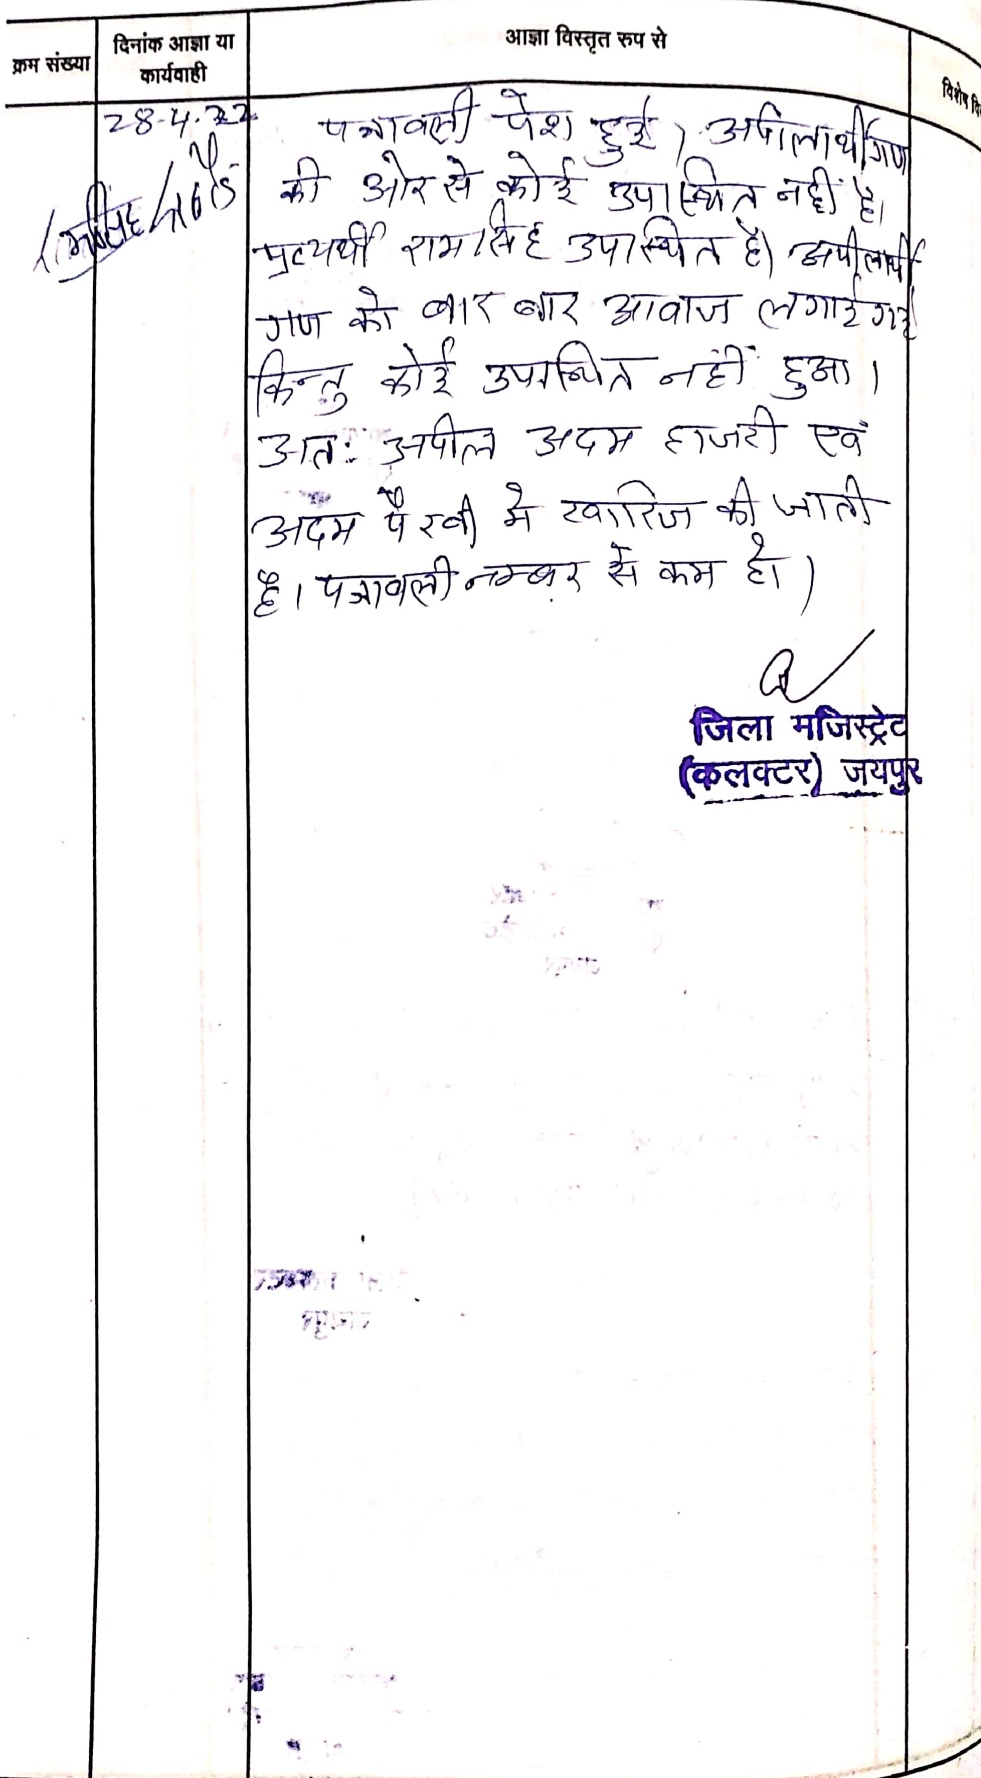 क्रम संख्या
दिनांक आज्ञा या
कार्यवाही
आज्ञा विस्तृत रुप से
विशेष
28-4-22
पत्रावली पेश हुई। अपीलार्थीगण
की ओर से कोई उपास्थित नहीं है।
प्रत्यर्थी रामसिंह उपास्थित है। अपीलार्थी
गण को बार बार आवाज लगाई गई
किन्तु कोई उपस्थित नहीं हुआ।
अतः अपील अदम हाजरी एवं
अदम पैरवी मे खारिज की जाती
है। पत्रावली नम्बर से कम हो।
जिला मजिस्ट्रेट
(कलक्टर) जयपुर